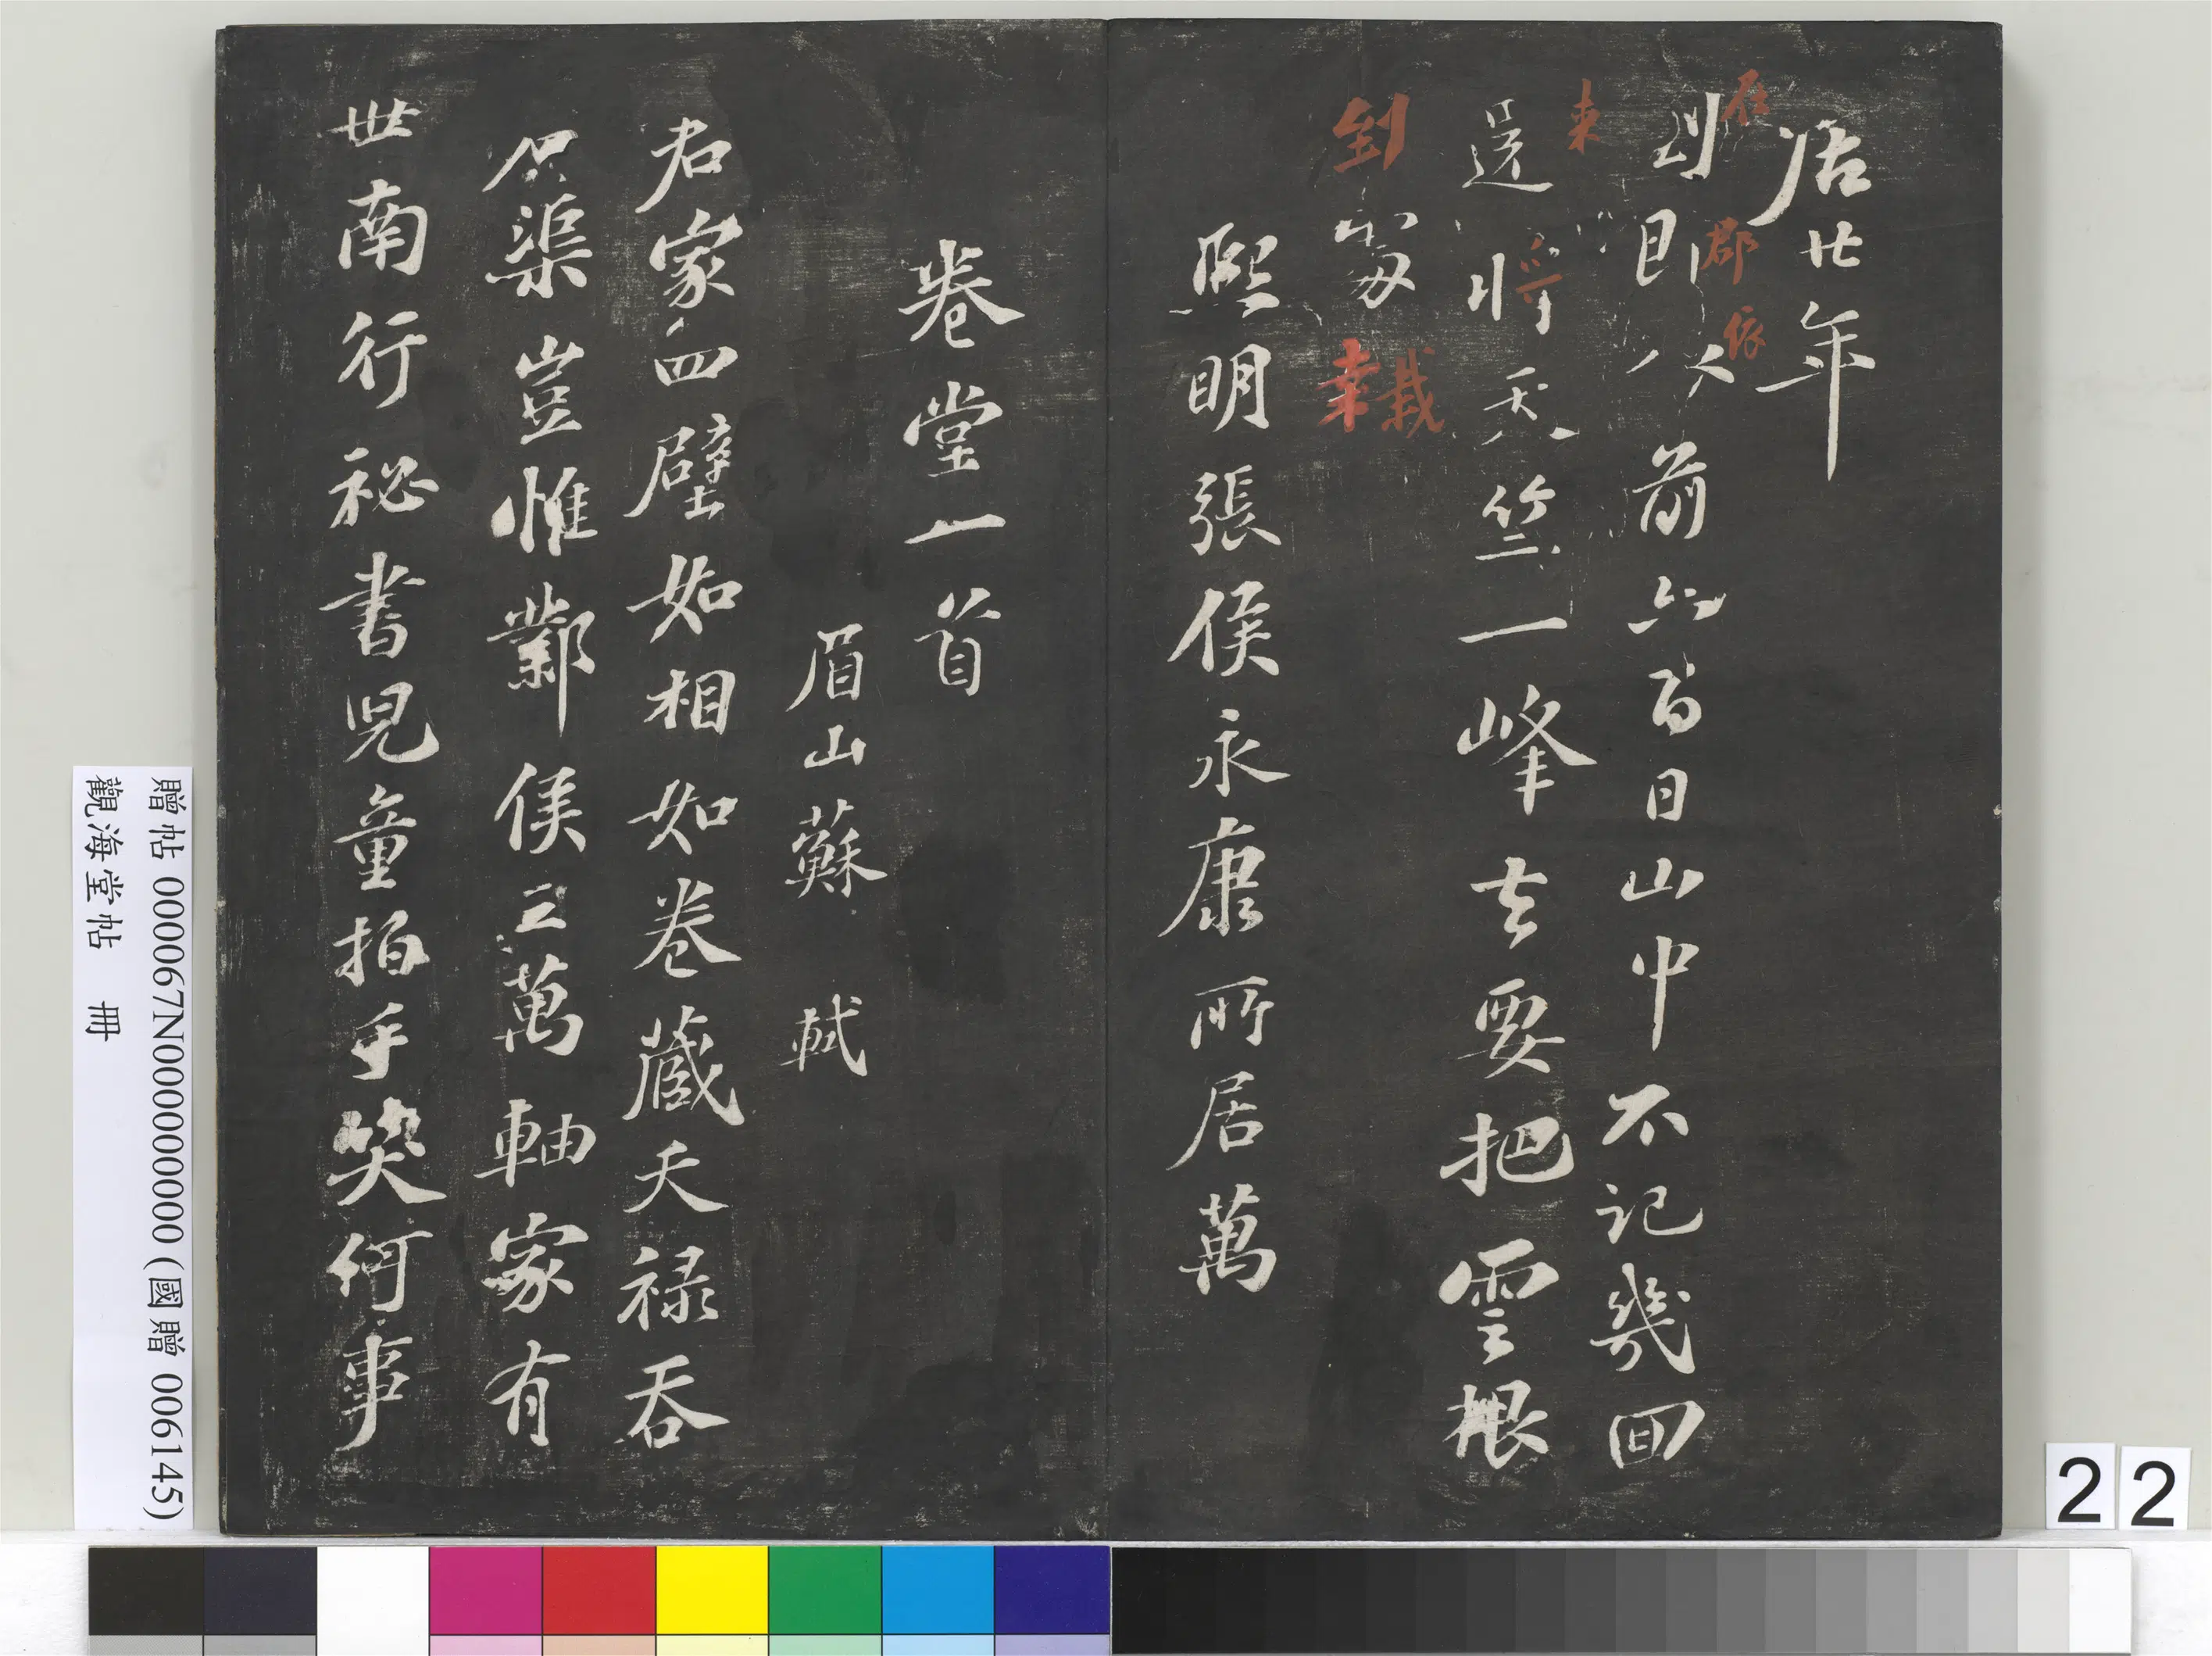 居廿年
在郡依前六百日山中不記幾回
来
還將天竺一峰去要把雲根
到
栽
熙明張侯永康所居萬
卷堂一首
眉山蘇 軾
君家四壁如相如卷藏天祿吞
石渠豈惟鄴侯三萬軸家有
世南行祕書兒童拍手笑何事
贈帖 000067N000000000 (國贈 006145)
觀海堂帖 冊
22